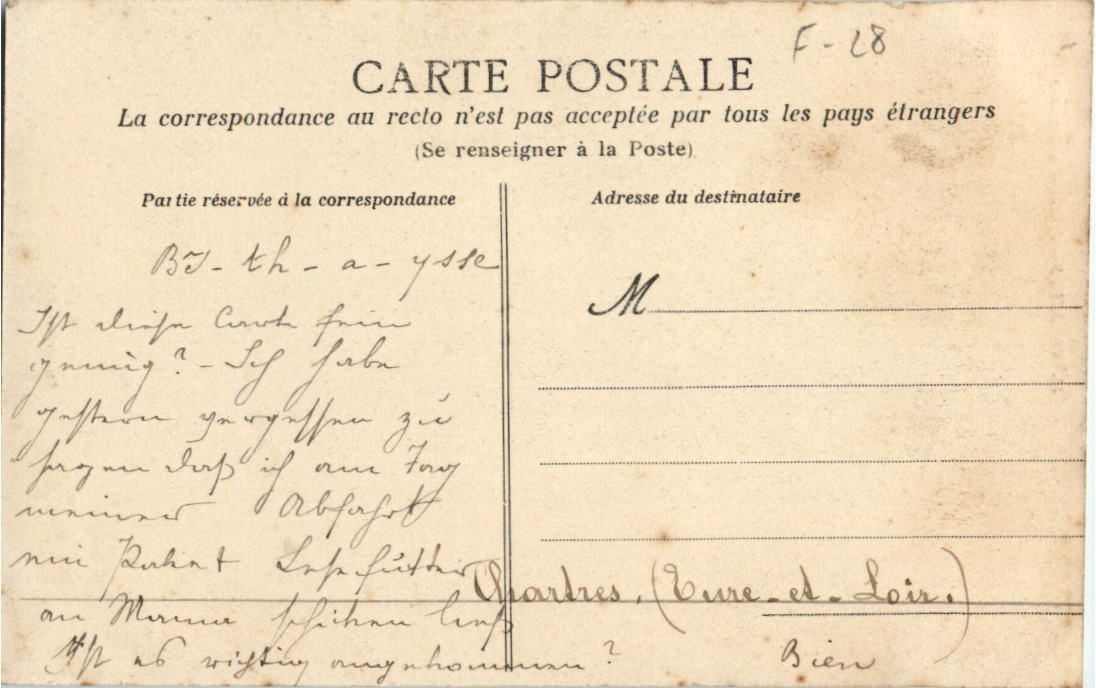 F-28
CARTE POSTALE
La correspondance au recto n'est pas acceptée par tous les pays étrangers
(Se renseigner à la Poste)
Partie réservée à la correspondance
Adresse du destinataire
M
th - a - ysse
Ist diese Carte fein
genug? - Ich habe
gestern vergessen zu
sagen daß ich am Tag
meiner Abfahrt
ein Paket Lesefutter
an Mama schicken ließ
Ist es richtig angekommen?
Chartres. (Eure-et-Loir.)
Bien